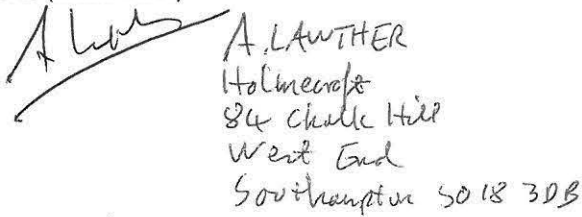 A. LAWTHER
Holmecroft
84 Chalk Hill
West End
Southampton SO18 3DB